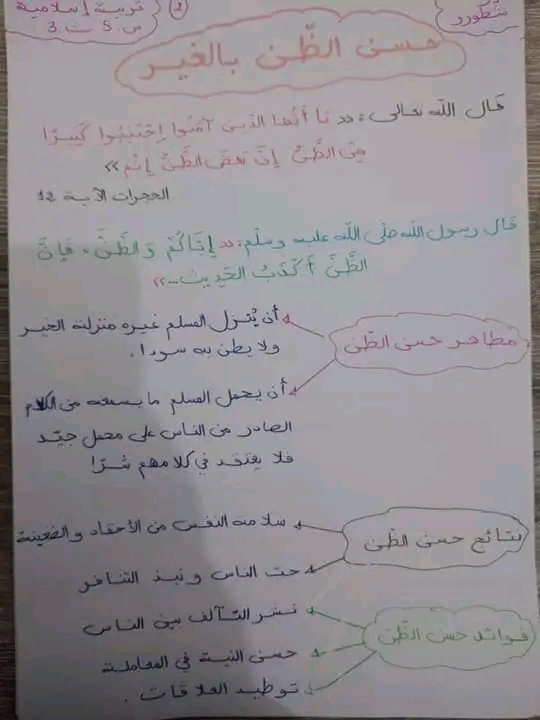 تربية إسلامية
2
س. 5 ث. 3
حسن الظّن بالغير
قال الله تعالى: << يا أيّها الذين آمنوا اجتنبوا كثيرًا
مِنَ الظَّنِّ إنَّ بَعْضَ الظَّنِّ إثم >>
الحجرات الآية 12
قال رسول الله صلّى الله عليه وسلّم: << إيّاكُمْ وَالظَّنَّ، فَإنَّ
الظَّنَّ أكْذَبُ الحَدِيث... >>
مظاهر حسن الظّن
أن يُنزل المسلم غيره منزلة الخير
ولا يظن به سوءا.
أن يحمل المسلم ما يسمعه من الكلام
الصادر من الناس على محمل جيّد
فلا يعتقد في كلامهم شرًّا
نتائج حسن الظّن
سلامة النفس من الأحقاد والضغينة
حب الناس ونبذ التنافر
فوائد حسن الظّن
نشر التّآلف بين الناس
حسن النية في المعاملة
توطيد العلاقات.